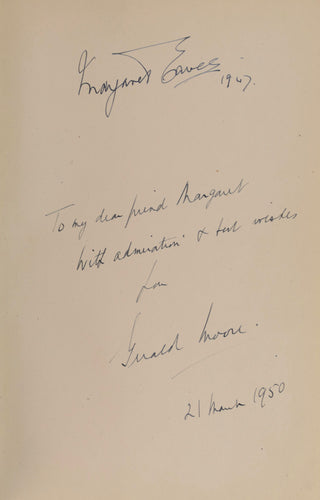 Margaret Eaves 1947.
To my dear friend Margaret
With admiration & best wishes
from
Gerald Moore.
21 March 1950